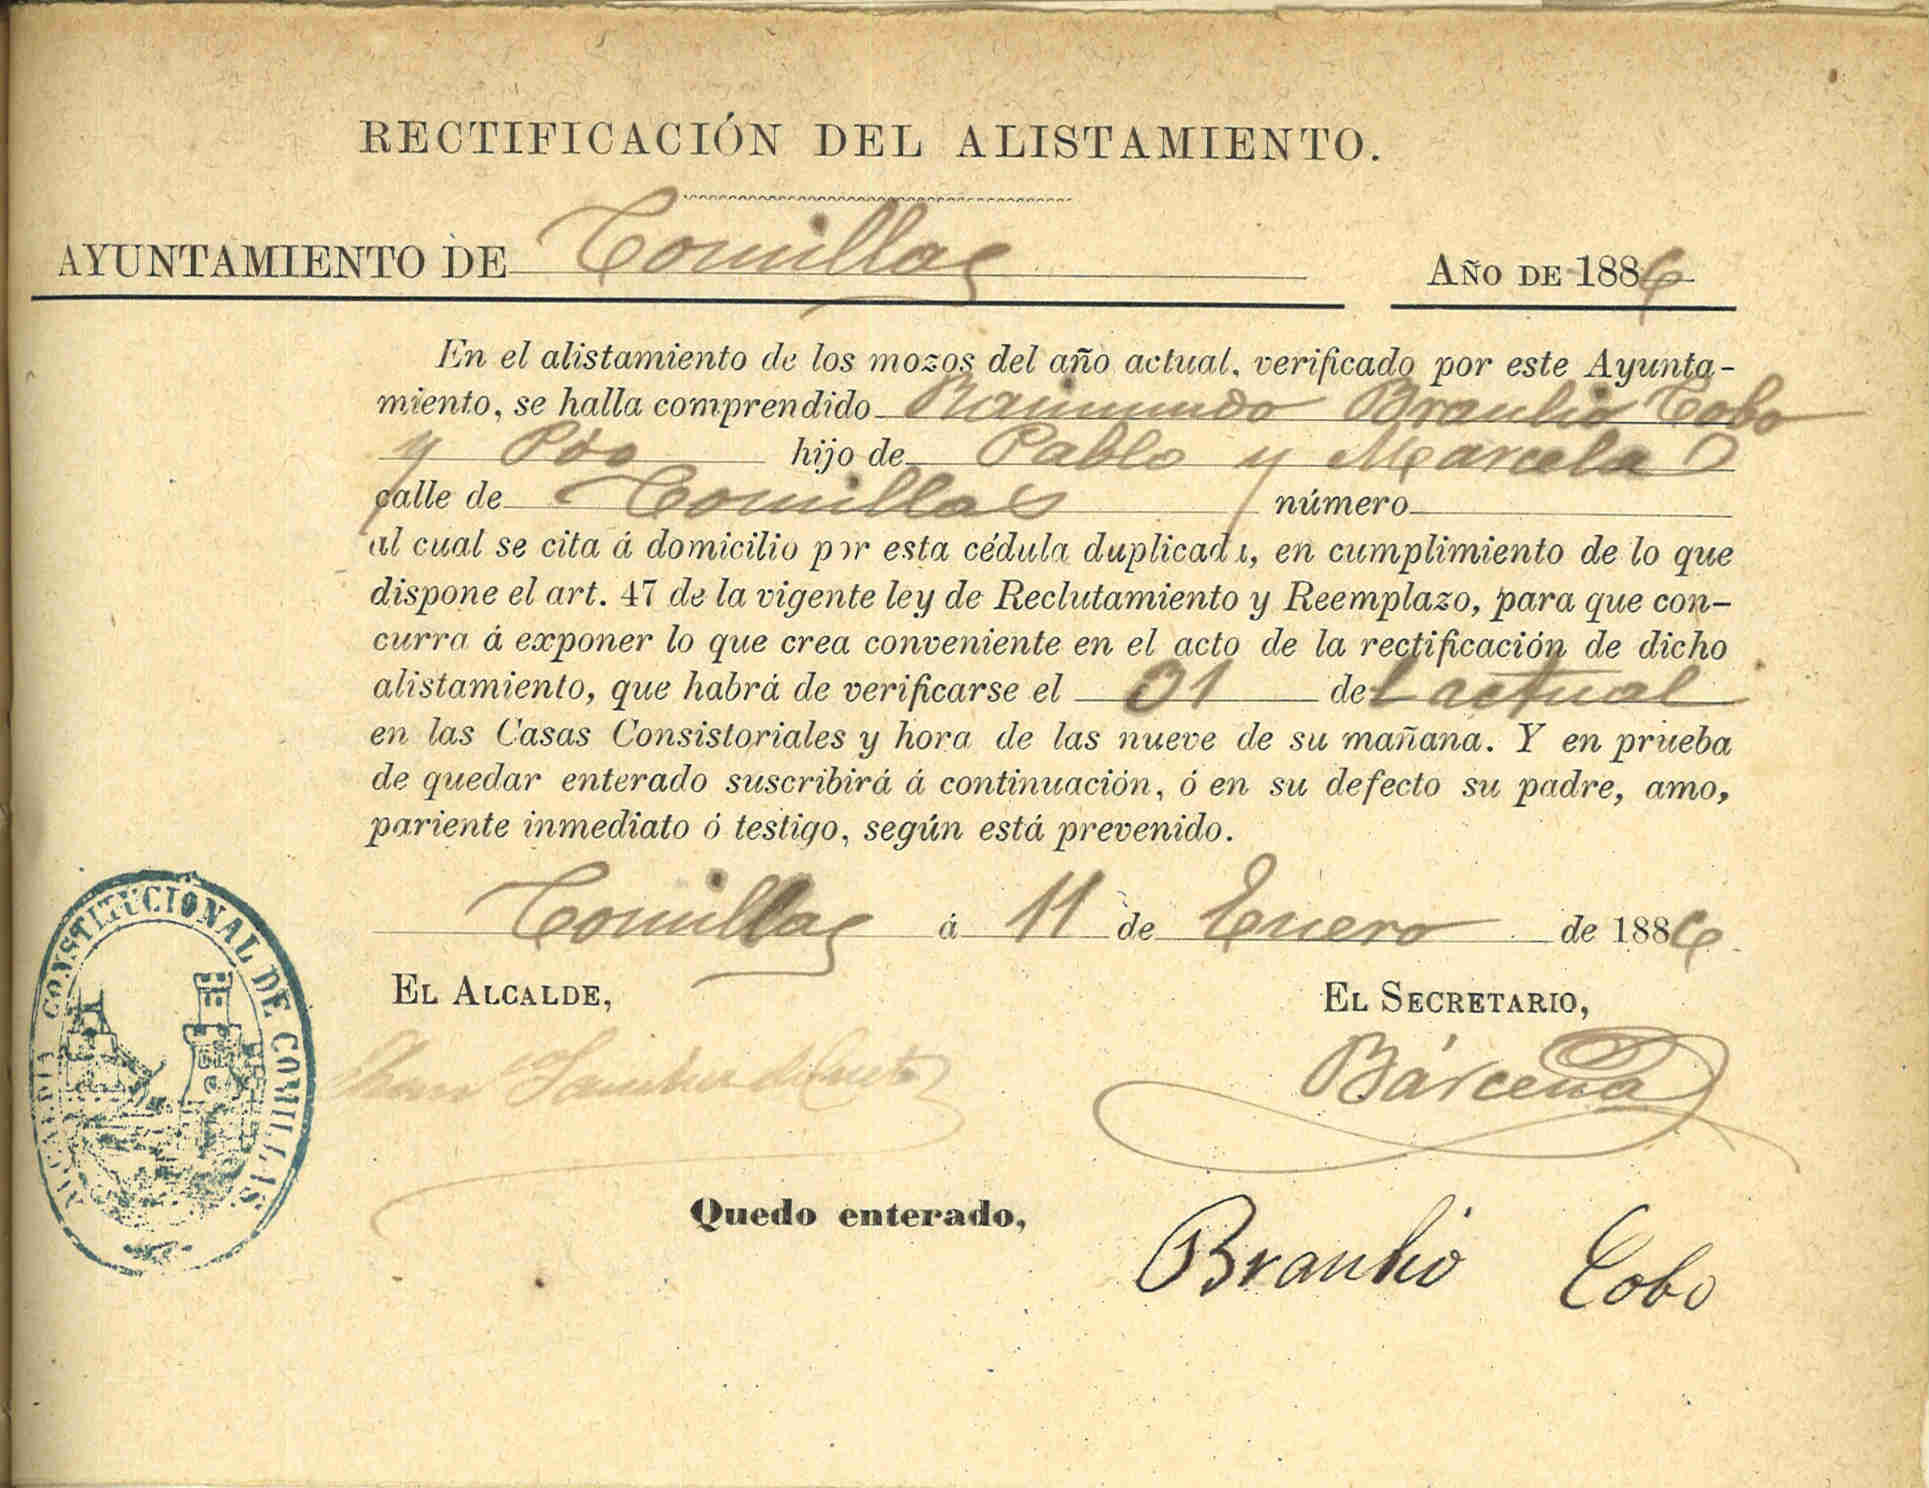 RECTIFICACIÓN DEL ALISTAMIENTO.
AYUNTAMIENTO DE Comillas AÑO DE 1886
En el alistamiento de los mozos del año actual, verificado por este Ayunta-
miento, se halla comprendido Raimundo Braulio Cobo
y hijo de Pablo y Marcela
calle de Comillas número
al cual se cita á domicilio por esta cédula duplicada, en cumplimiento de lo que
dispone el art. 47 de la vigente ley de Reclutamiento y Reemplazo, para que con-
curra á exponer lo que crea conveniente en el acto de la rectificación de dicho
alistamiento, que habrá de verificarse el 31 del actual
en las Casas Consistoriales y hora de las nueve de su mañana. Y en prueba
de quedar enterado suscribirá á continuación, ó en su defecto su padre, amo,
pariente inmediato ó testigo, según está prevenido.
Comillas á 11 de Enero de 1886.
ALCALDIA CONSTITUCIONAL DE COMILLAS
EL ALCALDE, EL SECRETARIO,
Bárcena
Quedo enterado,
Braulio Cobo